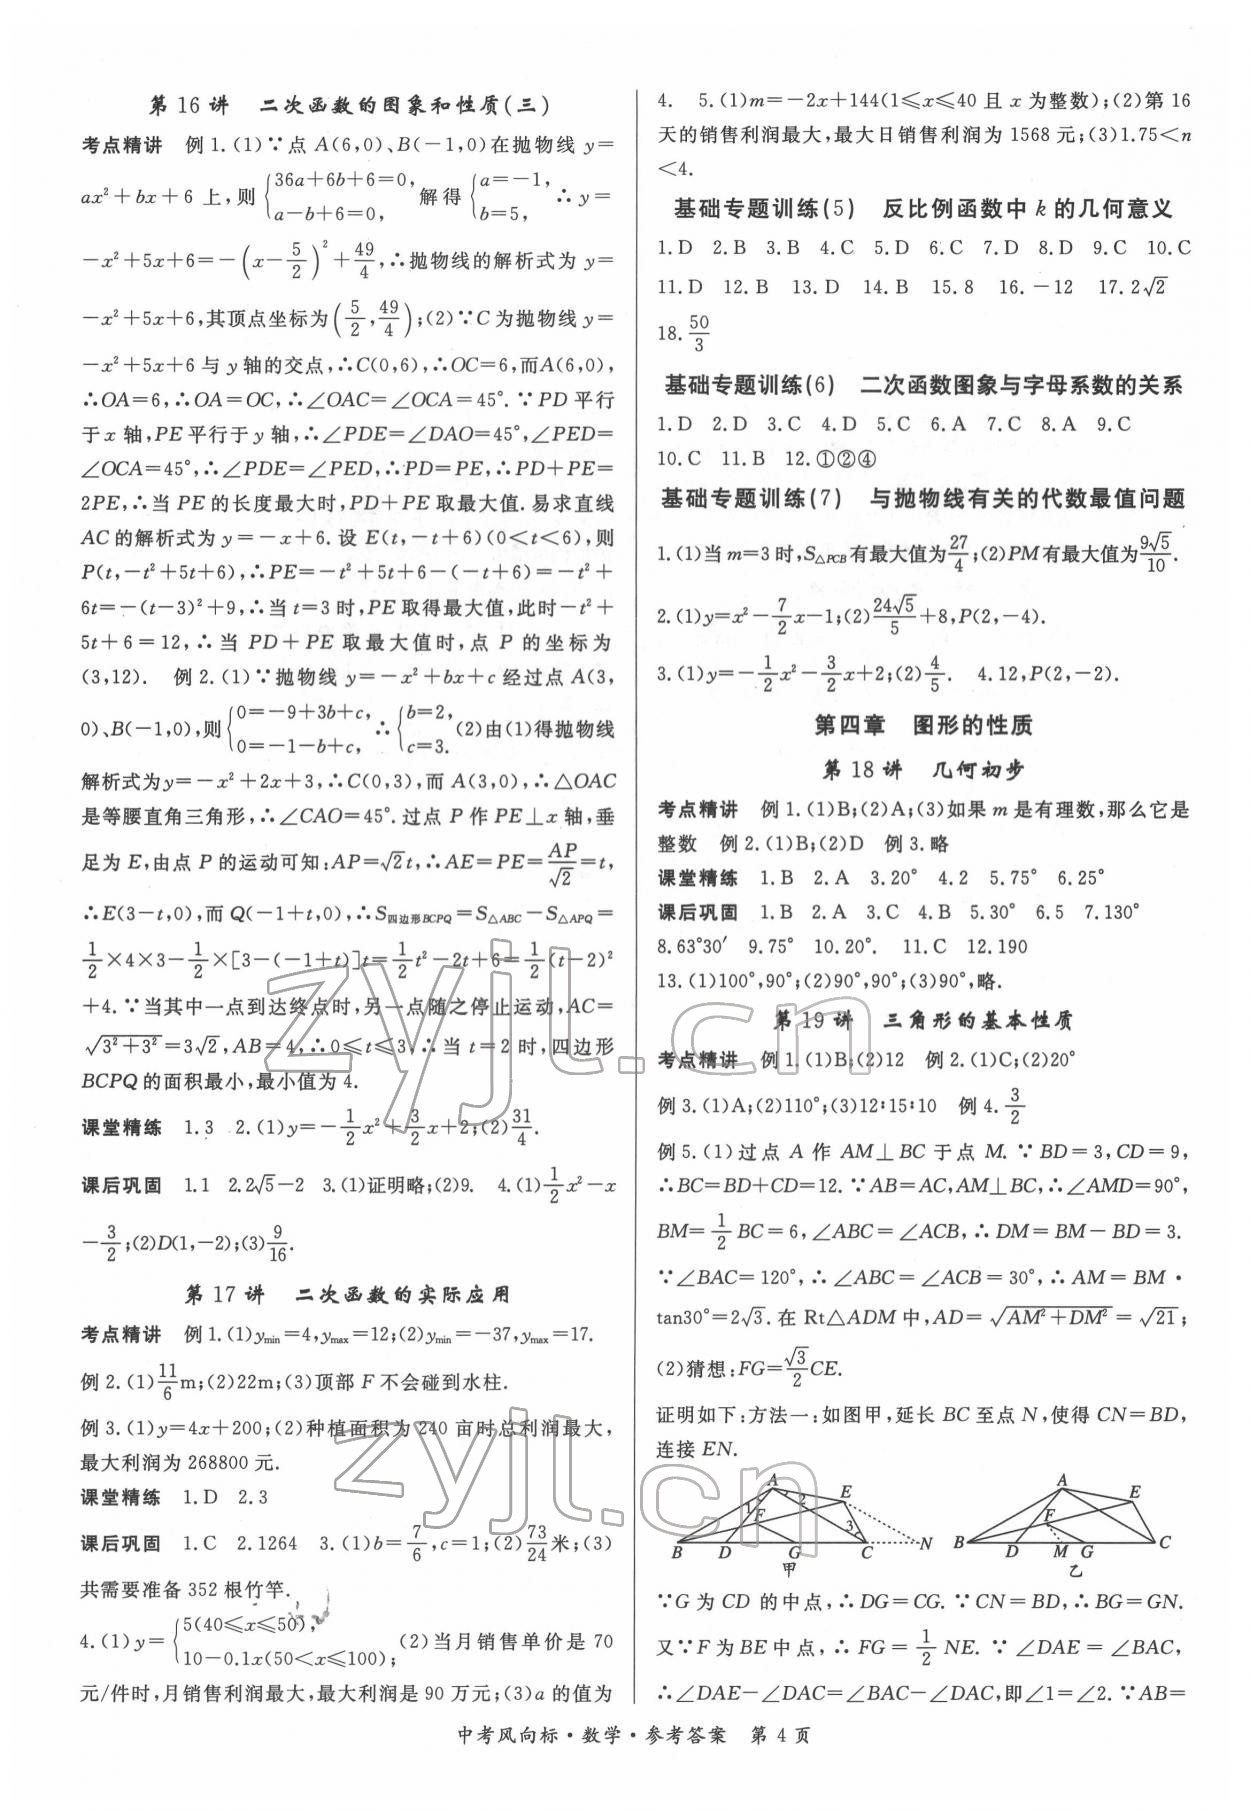 第 16 讲 二次函数的图象和性质(三)
考点精讲 例 1.(1)∵点 A(6,0)、B(－1,0)在抛物线 y＝
ax²＋bx＋6 上,则{36a＋6b＋6＝0, a－b＋6＝0, 解得{a＝－1, b＝5, ∴y＝
－x²＋5x＋6＝－(x－5/2)²＋49/4,∴抛物线的解析式为 y＝
－x²＋5x＋6,其顶点坐标为(5/2,49/4);(2)∵C 为抛物线 y＝
－x²＋5x＋6 与 y 轴的交点,∴C(0,6),∴OC＝6,而A(6,0),
∴OA＝6,∴OA＝OC,∴∠OAC＝∠OCA＝45°.∵PD 平行
于 x 轴,PE 平行于 y 轴,∴∠PDE＝∠DAO＝45°,∠PED＝
∠OCA＝45°,∴∠PDE＝∠PED,∴PD＝PE,∴PD＋PE＝
2PE,∴当 PE 的长度最大时,PD＋PE 取最大值.易求直线
AC 的解析式为 y＝－x＋6.设 E(t,－t＋6)(0＜t＜6),则
P(t,－t²＋5t＋6),∴PE＝－t²＋5t＋6－(－t＋6)＝－t²＋
6t＝－(t－3)²＋9,∴当 t＝3 时,PE 取得最大值,此时－t²＋
5t＋6＝12,∴当 PD＋PE 取最大值时,点 P 的坐标为
(3,12). 例 2.(1)∵抛物线 y＝－x²＋bx＋c 经过点 A(3,
0)、B(－1,0),则{0＝－9＋3b＋c, 0＝－1－b＋c, ∴{b＝2, c＝3. (2)由(1)得抛物线
解析式为y＝－x²＋2x＋3,∴C(0,3),而 A(3,0),∴△OAC
是等腰直角三角形,∴∠CAO＝45°.过点 P 作 PE⊥x 轴,垂
足为 E,由点 P 的运动可知:AP＝√2t,∴AE＝PE＝AP/√2＝t,
∴E(3－t,0),而 Q(－1＋t,0),∴S四边形BCPQ＝S△ABC－S△APQ＝
1/2×4×3－1/2×[3－(－1＋t)]t＝1/2t²－2t＋6＝1/2(t－2)²
＋4.∵当其中一点到达终点时,另一点随之停止运动,AC＝
√(3²＋3²)＝3√2,AB＝4,∴0≤t≤3,∴当 t＝2 时,四边形
BCPQ 的面积最小,最小值为 4.
课堂精练 1.3 2.(1)y＝－1/2x²＋3/2x＋2;(2)31/4.
课后巩固 1.1 2.2√5－2 3.(1)证明略;(2)9. 4.(1)1/2x²－x
－3/2;(2)D(1,－2);(3)9/16.
第 17 讲 二次函数的实际应用
考点精讲 例 1.(1)ymin＝4,ymax＝12;(2)ymin＝－37,ymax＝17.
例 2.(1)11/6m;(2)22m;(3)顶部 F 不会碰到水柱.
例 3.(1)y＝4x＋200;(2)种植面积为 240 亩时总利润最大,
最大利润为 268800 元.
课堂精练 1.D 2.3
课后巩固 1.C 2.1264 3.(1)b＝7/6,c＝1;(2)73/24米;(3)
共需要准备 352 根竹竿.
4.(1)y＝{5(40≤x≤50), 10－0.1x(50＜x≤100); (2)当月销售单价是 70
元/件时,月销售利润最大,最大利润是 90 万元;(3)a 的值为
4. 5.(1)m＝－2x＋144(1≤x≤40 且 x 为整数);(2)第 16
天的销售利润最大,最大日销售利润为 1568 元;(3)1.75＜n
＜4.
基础专题训练(5) 反比例函数中 k 的几何意义
1.D 2.B 3.B 4.C 5.D 6.C 7.D 8.D 9.C 10.C
11.D 12.B 13.D 14.B 15.8 16.－12 17.2√2
18.50/3
基础专题训练(6) 二次函数图象与字母系数的关系
1.D 2.D 3.C 4.D 5.C 6.A 7.C 8.A 9.C
10.C 11.B 12.①②④
基础专题训练(7) 与抛物线有关的代数最值问题
1.(1)当 m＝3 时,S△PCB有最大值为27/4;(2)PM有最大值为9√5/10.
2.(1)y＝x²－7/2x－1;(2)24√5/5＋8,P(2,－4).
3.(1)y＝－1/2x²－3/2x＋2;(2)4/5. 4.12,P(2,－2).
第四章 图形的性质
第 18 讲 几何初步
考点精讲 例 1.(1)B;(2)A;(3)如果 m 是有理数,那么它是
整数 例 2.(1)B;(2)D 例 3.略
课堂精练 1.B 2.A 3.20° 4.2 5.75° 6.25°
课后巩固 1.B 2.A 3.C 4.B 5.30° 6.5 7.130°
8.63°30′ 9.75° 10.20°. 11.C 12.190
13.(1)100°,90°;(2)90°,90°;(3)90°,略.
第 19 讲 三角形的基本性质
考点精讲 例 1.(1)B;(2)12 例 2.(1)C;(2)20°
例 3.(1)A;(2)110°;(3)12∶15∶10 例 4.3/2
例 5.(1)过点 A 作 AM⊥BC 于点 M.∵BD＝3,CD＝9,
∴BC＝BD＋CD＝12.∵AB＝AC,AM⊥BC,∴∠AMD＝90°,
BM＝1/2BC＝6,∠ABC＝∠ACB,∴DM＝BM－BD＝3.
∵∠BAC＝120°,∴∠ABC＝∠ACB＝30°,∴AM＝BM·
tan30°＝2√3.在 Rt△ADM 中,AD＝√(AM²＋DM²)＝√21;
(2)猜想:FG＝√3/2CE.
证明如下:方法一:如图甲,延长 BC 至点 N,使得 CN＝BD,
连接 EN.
A E F B D G C N 1 2 3 甲
A E F B D M G C 乙
∵G 为 CD 的中点,∴DG＝CG.∵CN＝BD,∴BG＝GN.
又∵F 为 BE 中点,∴FG＝1/2NE.∵∠DAE＝∠BAC,
∴∠DAE－∠DAC＝∠BAC－∠DAC,即∠1＝∠2.∵AB＝
中考风向标·数学·参考答案 第 4 页
zyjl.cn
zyjl.cn